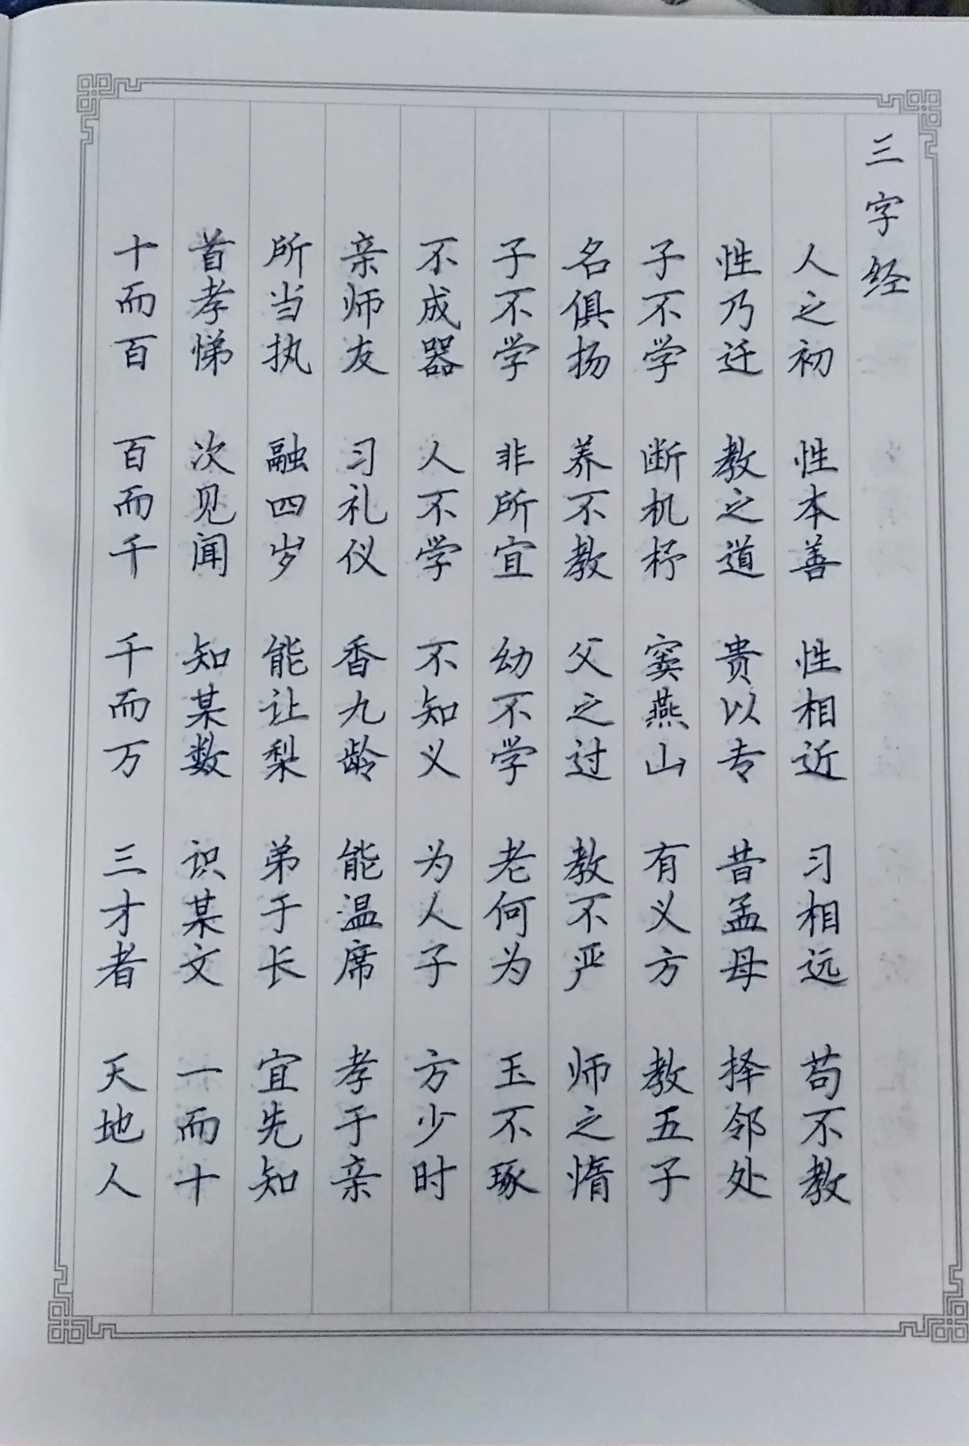 三字经
人之初 性本善 性相近 习相远 苟不教
性乃迁 教之道 贵以专 昔孟母 择邻处
子不学 断机杼 窦燕山 有义方 教五子
名俱扬 养不教 父之过 教不严 师之惰
子不学 非所宜 幼不学 老何为 玉不琢
不成器 人不学 不知义 为人子 方少时
亲师友 习礼仪 香九龄 能温席 孝于亲
所当执 融四岁 能让梨 弟于长 宜先知
首孝悌 次见闻 知某数 识某文 一而十
十而百 百而千 千而万 三才者 天地人